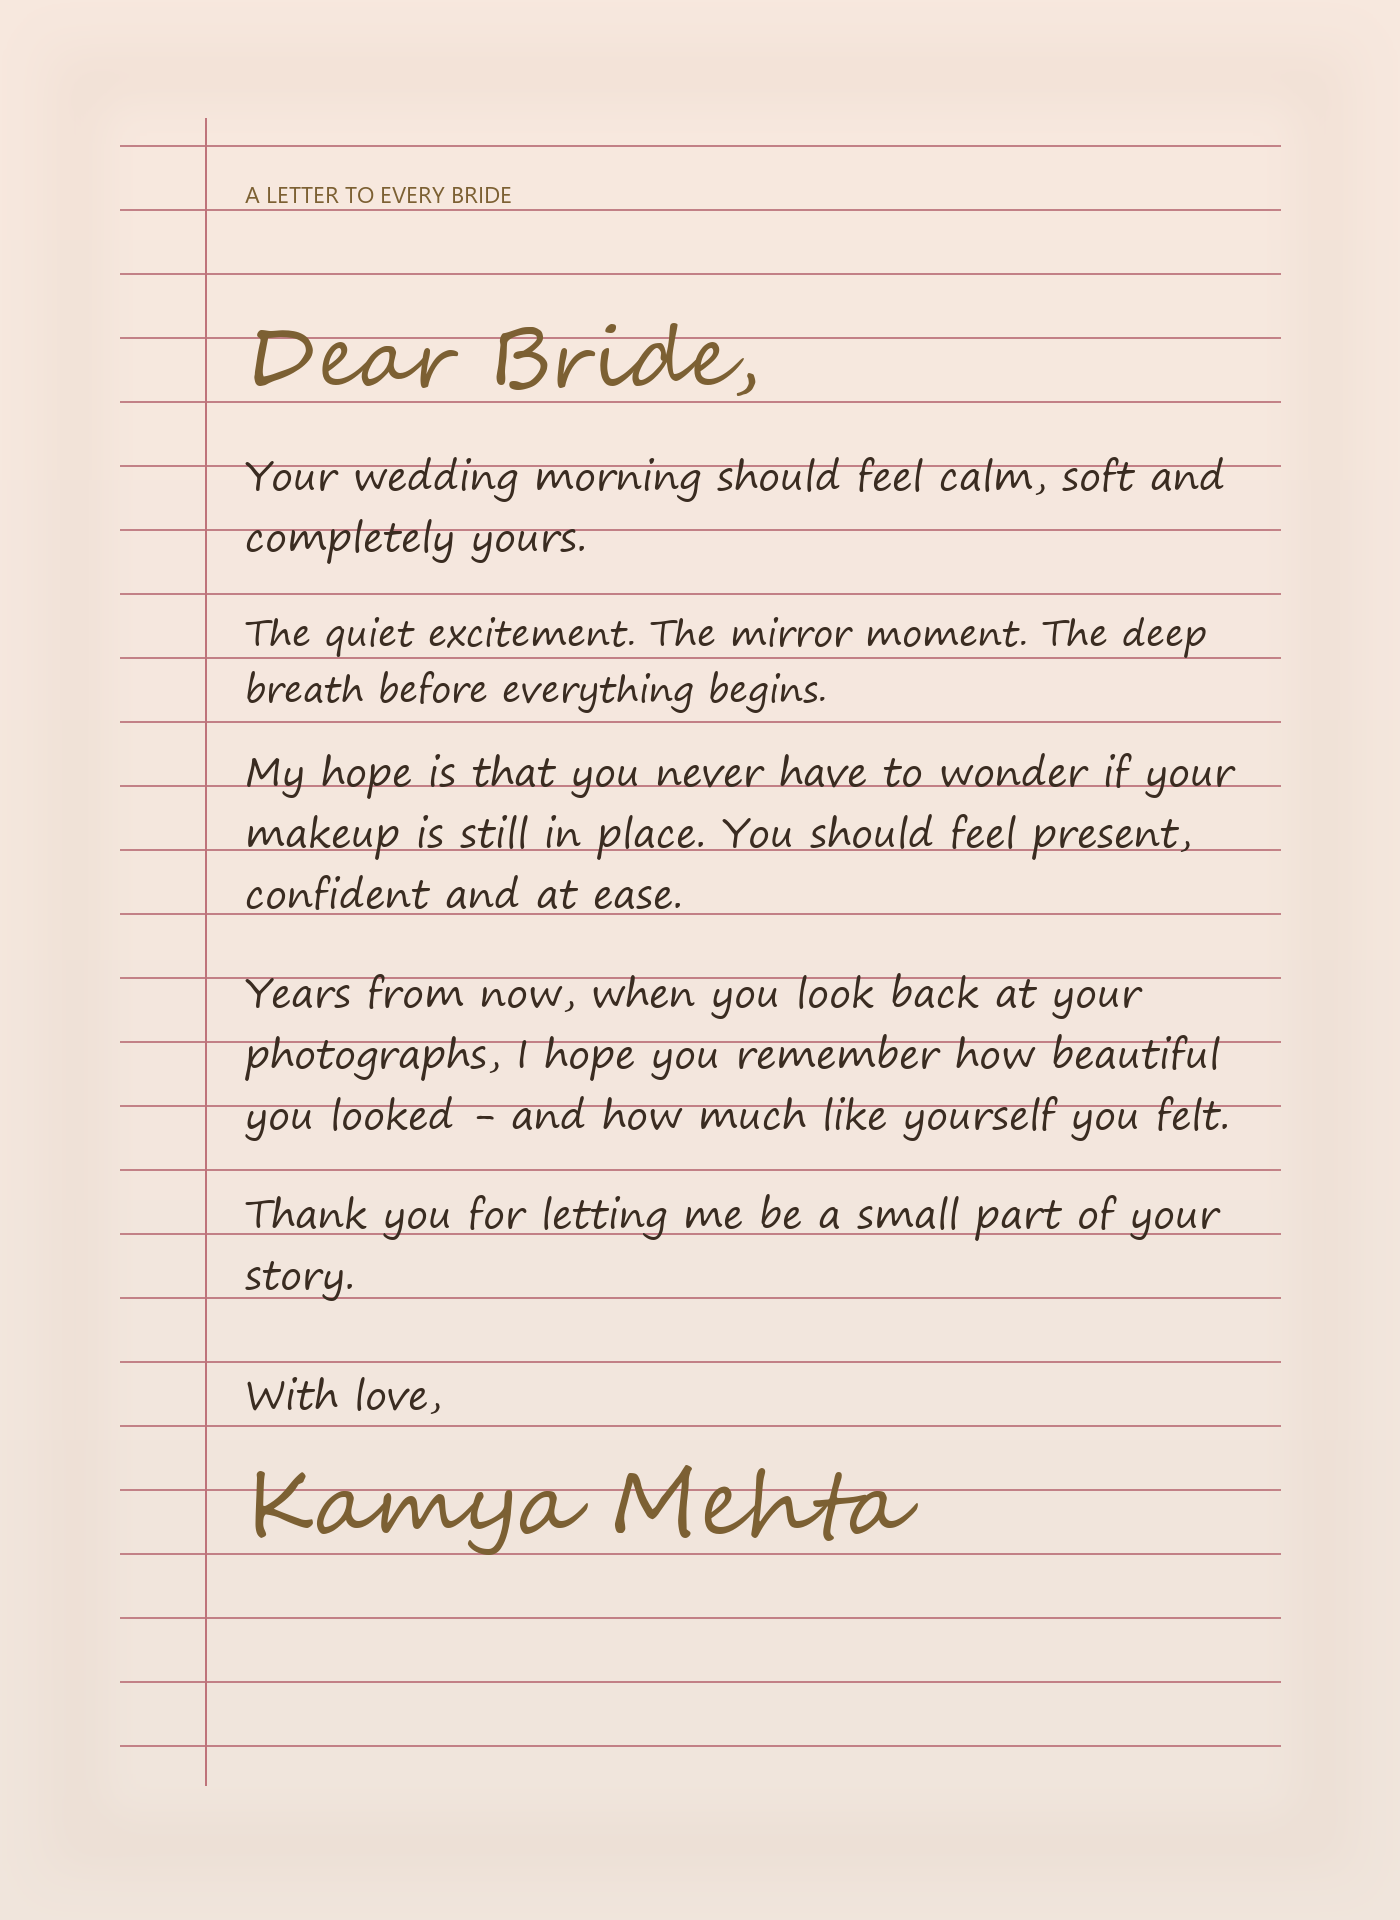 A LETTER TO EVERY BRIDE
Dear Bride,
Your wedding morning should feel calm, soft and
completely yours.
The quiet excitement. The mirror moment. The deep
breath before everything begins.
My hope is that you never have to wonder if your
makeup is still in place. You should feel present,
confident and at ease.
Years from now, when you look back at your
photographs, I hope you remember how beautiful
you looked - and how much like yourself you felt.
Thank you for letting me be a small part of your
story.
With love,
Kamya Mehta